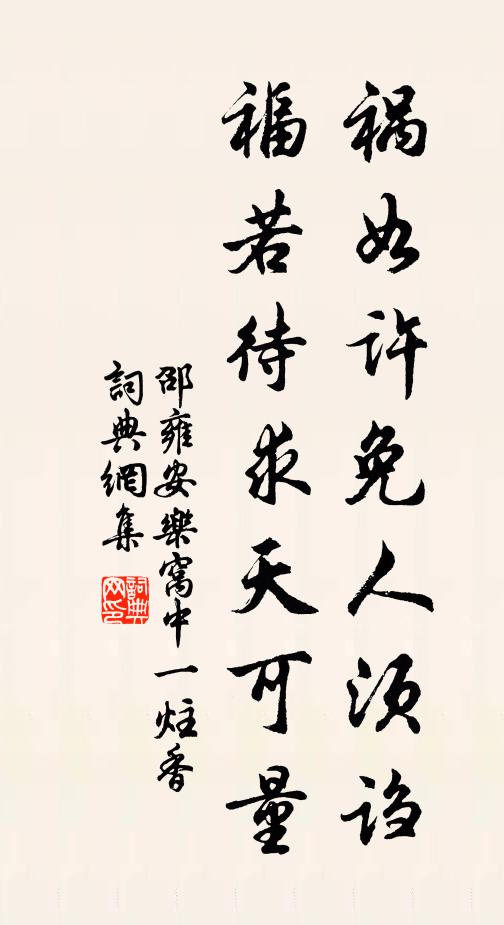 祸如许免人须谄
福若待求天可量
邵雍安樂窩中一炷香
詞典網集
詞典網印